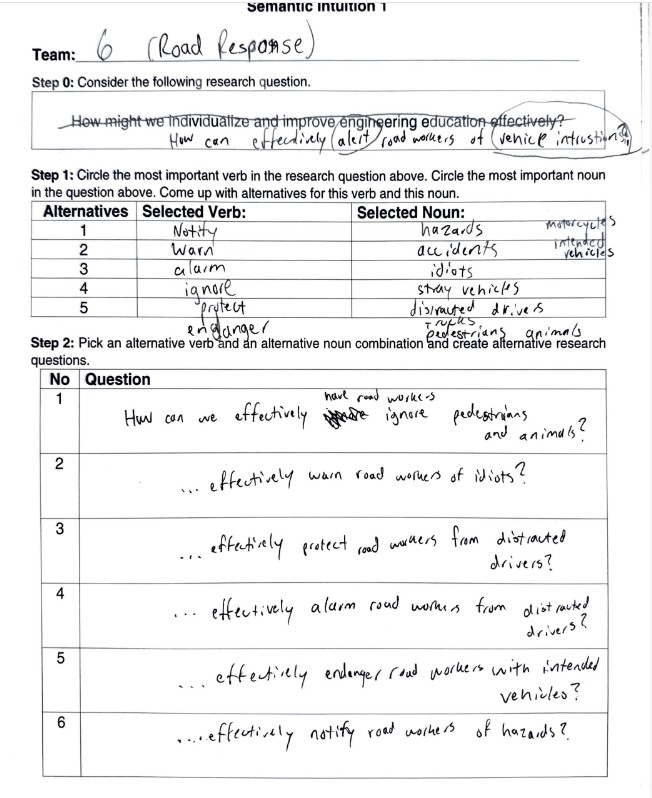 Semantic Intuition 1
Team: 6 (Road Response)
Step 0: Consider the following research question.
How might we individualize and improve engineering education effectively?
How can effectively alert road workers of vehicle intrustion?
Step 1: Circle the most important verb in the research question above. Circle the most important noun
in the question above. Come up with alternatives for this verb and this noun.
Alternatives Selected Verb: Selected Noun:
1 Notify hazards motorcycles
2 Warn accidents intended vehicles
3 alarm idiots
4 ignore stray vehicles
5 protect distracted drivers
endanger trucks pedestrians animals
Step 2: Pick an alternative verb and an alternative noun combination and create alternative research
questions.
No Question
1 How can we effectively have road workers ignore pedestrians
and animals?
2 ... effectively warn road workers of idiots?
3 ... effectively protect road workers from distracted
drivers?
4 ... effectively alarm road workers from distracted
drivers?
5 ... effectively endanger road workers with intended
vehicles?
6 ... effectively notify road workers of hazards?